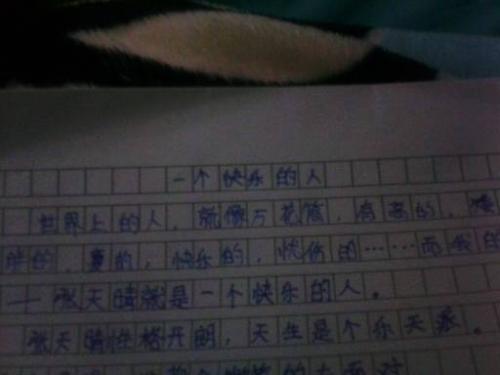 一个快乐的人
世界上的人，就像万花筒，有高的，矮
胖的，
的，快乐的，忧伤的……而我的
——张天晴就是一个快乐的人。
张天晴性格开朗，天生是个乐天派。